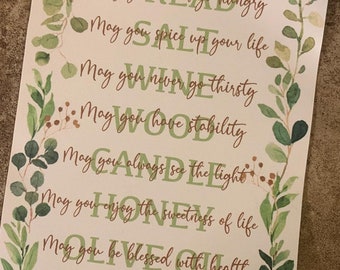 hungry
SALT
May you spice up your life
WINE
May you never go thirsty
WOOD
May you have stability
CANDLE
May you always see the light
HONEY
May you enjoy the sweetness of life
OLIVE
May you be blessed with health